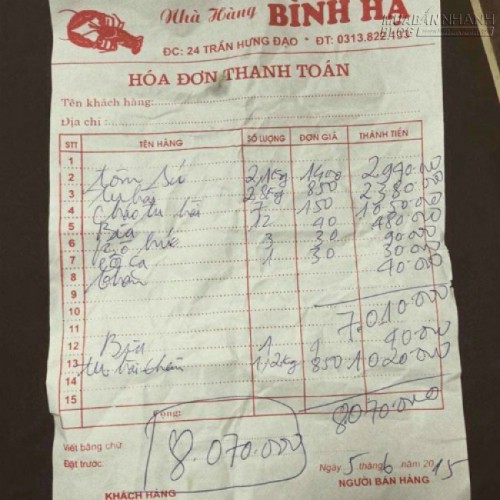 Nhà Hàng BÌNH HẠ
MUABANNHANH
BLOG
ĐC: 24 TRẦN HƯNG ĐẠO - ĐT: 0313.822.103
HÓA ĐƠN THANH TOÁN
Tên khách hàng:
Địa chỉ :
STT TÊN HÀNG SỐ LƯỢNG ĐƠN GIÁ THÀNH TIỀN
1
2 tôm sú 2,1kg 1400 2.940.000
3 tu hài 2,8kg 850 2.380.000
4 cháo tu hài 7 150 1050.000
5 Bia 12 40 480.000
6 3 30 90.000
7 1 30 30.000
8 40.000
9
10 7.010.000
11
12 Bia 1 40.000
13 tu hài 1,2kg 850 1020.000
14
15 8070.000
Cộng:
8.070.000
Viết bằng chữ:
Đặt trước:
Ngày 5 tháng 6 năm 2015
KHÁCH HÀNG NGƯỜI BÁN HÀNG